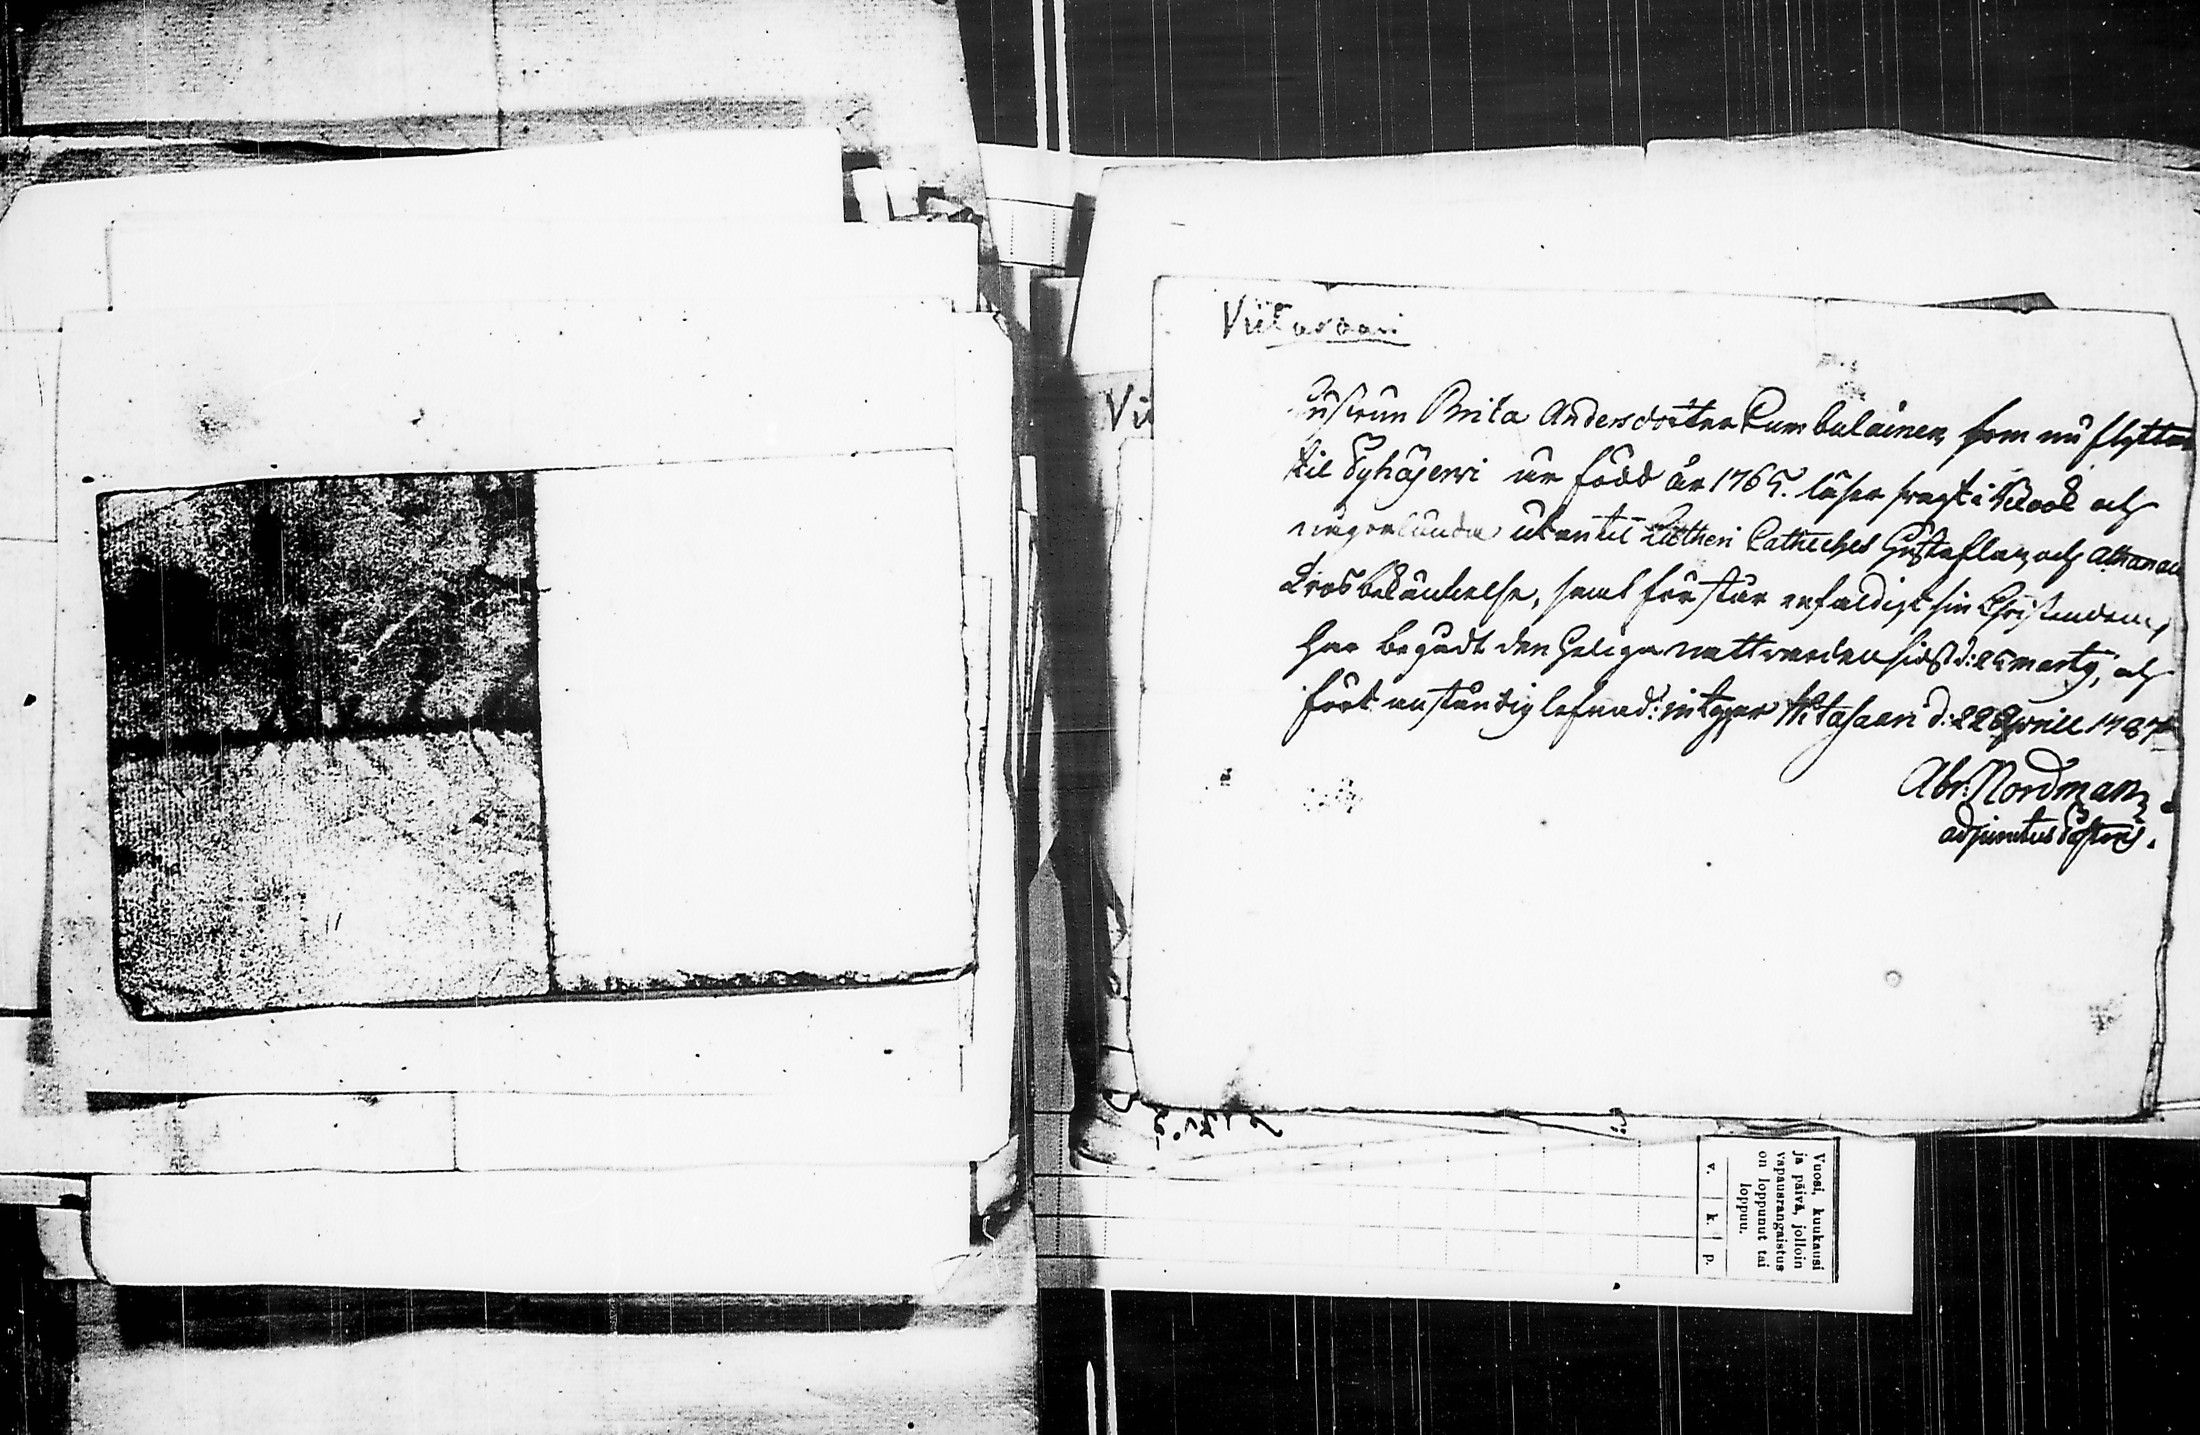 Viitasaari
Hustrun Brita Andersdotter Kumbulainen, som nu flytter
til Pyhäjervi är född år 1765. läser swagt i Book och
någorlunda utantil Lutheri Catheches Hustaflan och Athanasii
Trosbekännelse, samt förstår enfaldigt sin Christendom,
har begådt den Heliga nattwarden sidst d: 25 marty, och
fört anständig lefnad: intygar Witasaari d: 22 Aprill 1787
Abr: Nordman
adjunctus Pastoris.
Vi
Vuosi, kuukausi
ja päivä, jolloin
vapausrangaistus
on loppunut tai
loppuu.
v. k. p.